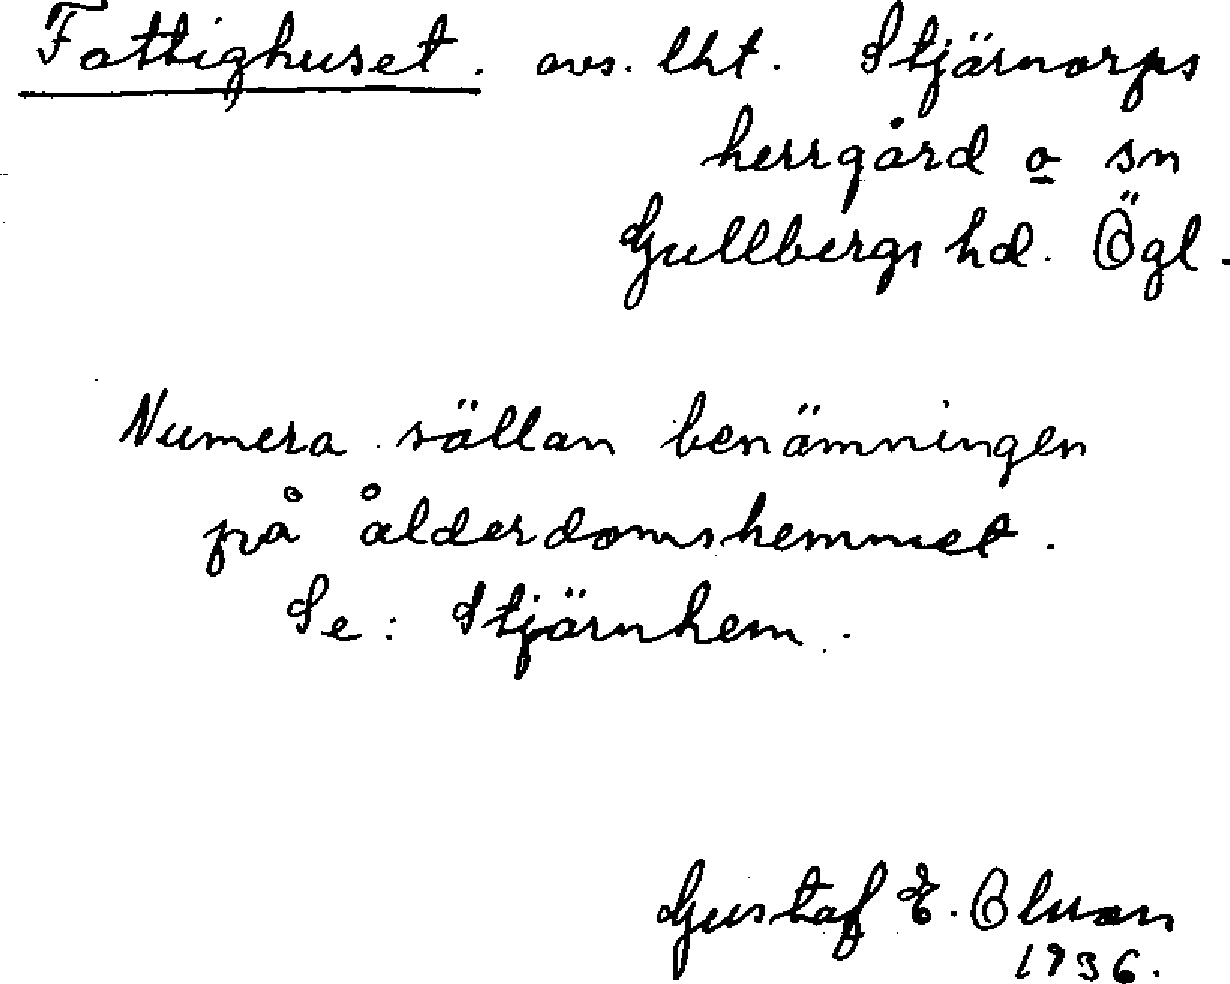 Fattighuset. avs. lht. Stjärnorps
herrgård o sn
Gullbergs hd. Ögl.
Numera sällan benämningen
på ålderdomshemmet.
Se: Stjärnhem.
Gustaf E. Olsson
1936.